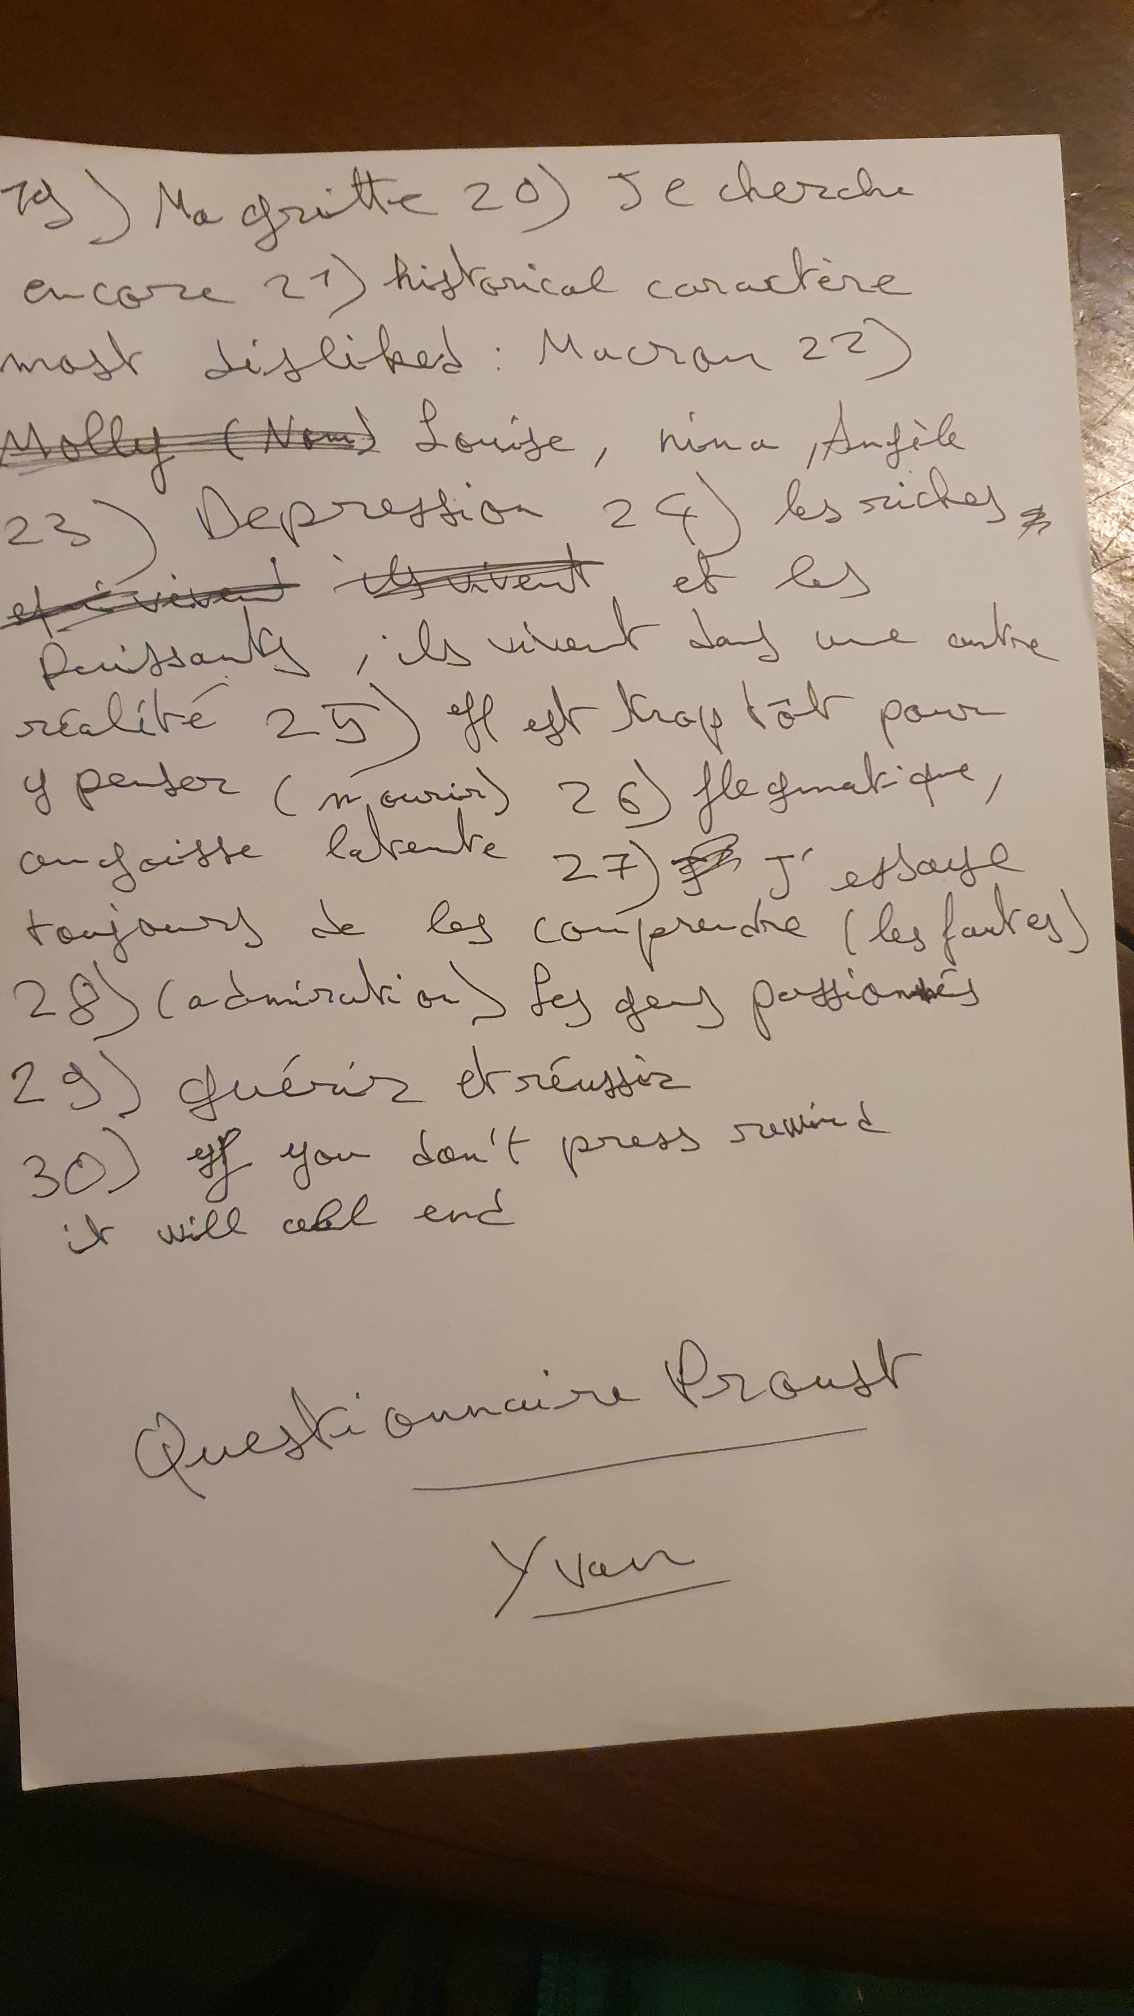 19) Magritte 20) Je cherche
encore 21) historical caractère
most disliked : Macron 22)
Molly (Nom) Louise, nina, Angèle
23) Depression 24) les riches
et vivent ils vivent et les
Puissants, ils vivent dans une autre
réalité 25) Il est trop tôt pour
y penser (mourir) 26) flegmatique,
angoisse latente 27) J'essaye
toujours de les comprendre (les fautes)
28) (admiration) Les gens passionnés
29) guérir et réussir
30) If you don't press rewind
it will all end
Questionnaire Proust
Yvan